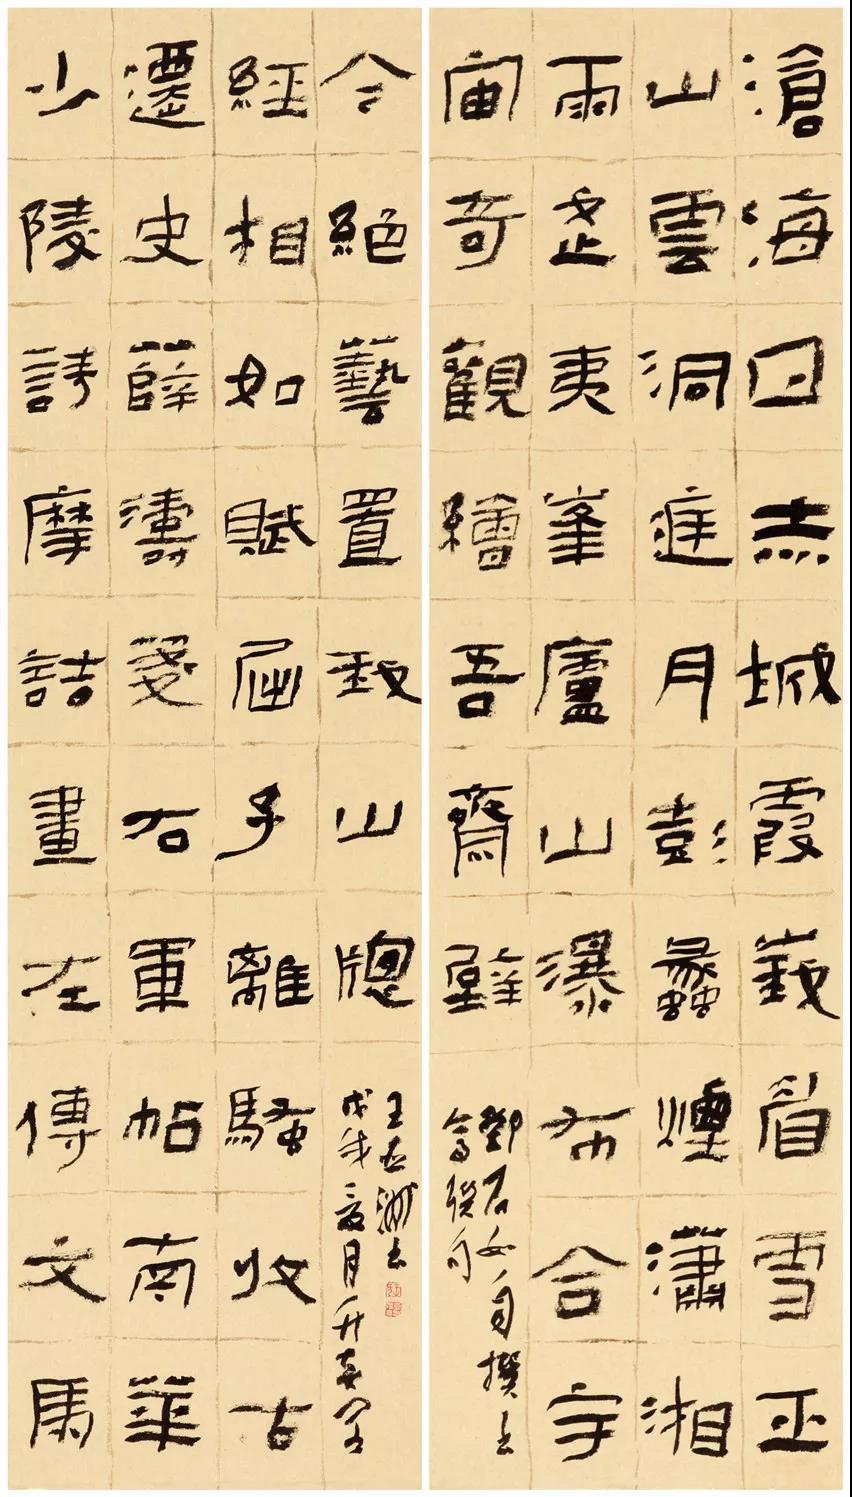 滄海日赤城霞峩眉雪巫
山雲洞庭月彭蠡煙瀟湘
雨武夷峯廬山瀑布合宇
宙奇觀繪吾齋壁
鄧石如自撰書
聯句
少陵詩摩詰畫左傳文馬
遷史薛濤箋右軍帖南華
經相如賦屈子離騷收古
今絕藝置我山牕
戊戌夏月
王亞洲書